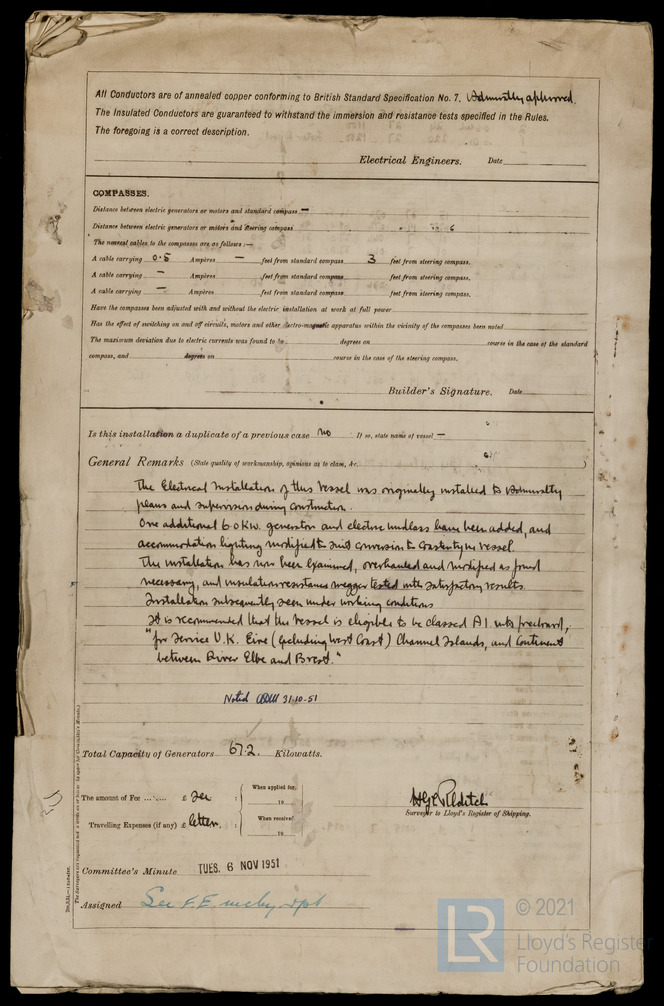 All Conductors are of annealed copper conforming to British Standard Specification No. 7. Admiralty approved.
The Insulated Conductors are guaranteed to withstand the immersion and resistance tests specified in the Rules.
The foregoing is a correct description.
Electrical Engineers. Date
COMPASSES.
Distance between electric generators or motors and standard compass —
Distance between electric generators or motors and steering compass 6
The nearest cables to the compasses are as follows :—
A cable carrying 0.5 Ampères — feet from standard compass 3 feet from steering compass.
A cable carrying — Ampères feet from standard compass feet from steering compass.
A cable carrying — Ampères feet from standard compass feet from steering compass.
Have the compasses been adjusted with and without the electric installation at work at full power
Has the effect of switching on and off circuits, motors and other electro-magnetic apparatus within the vicinity of the compasses been noted
The maximum deviation due to electric currents was found to be degrees on course in the case of the standard
compass, and degrees on course in the case of the steering compass.
Builder's Signature. Date
Is this installation a duplicate of a previous case No If so, state name of vessel —
General Remarks (State quality of workmanship, opinions as to class, &c. )
The Electrical Installation of this vessel was originally installed to Admiralty
plans and supervision during construction.
One additional 60KW. generator and electric windlass have been added, and
accommodation lighting modified to suit conversion to coaster type vessel.
The installation has now been examined, overhauled and modified as found
necessary, and insulation resistance megger tested with satisfactory results.
Installation subsequently seen under working conditions
It is recommended that the vessel is eligible to be classed A1 with freeboard,
"for Service U.K. Eire (excluding West Coast) Channel Islands, and Continent
between River Elbe and Brest."
Noted 31-10-51
Total Capacity of Generators 67.2. Kilowatts.
The amount of Fee £ see : When applied for,
19
Travelling Expenses (if any) £ letter. : When received,
19
Surveyor to Lloyd's Register of Shipping.
Committee's Minute TUES. 6 NOV 1951
Assigned See F.E. mchy. rpt
LR
© 2021
Lloyd's Register
Foundation